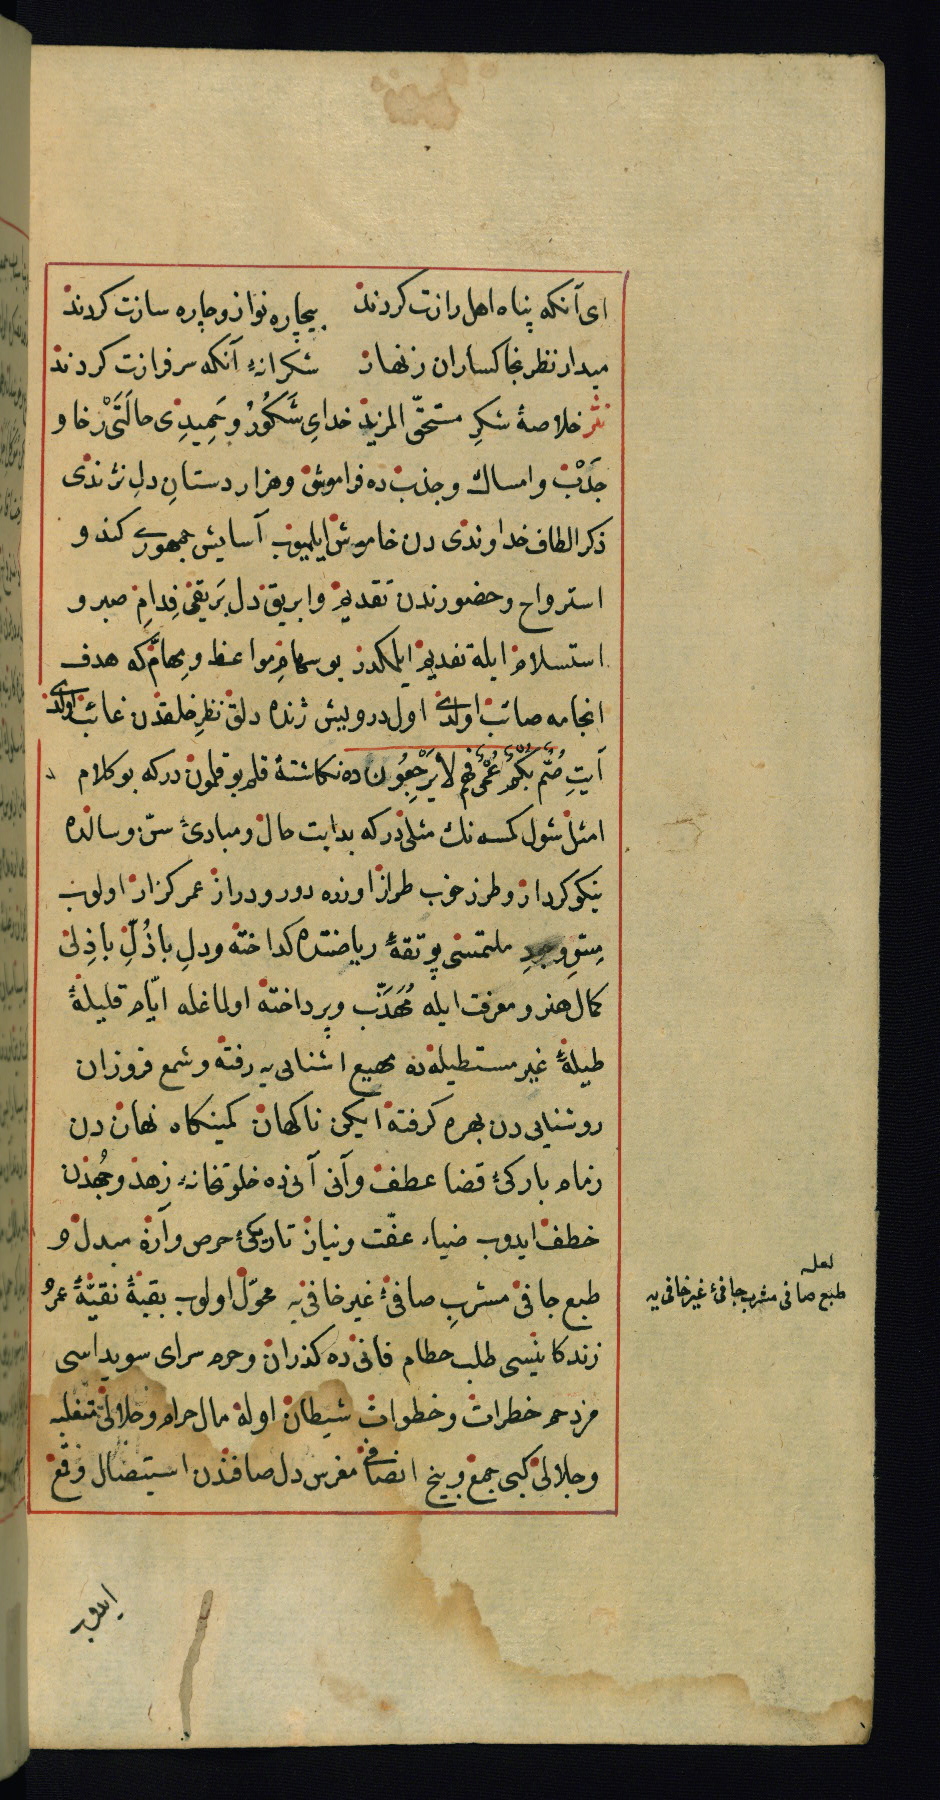 ای آنکه پناه اهل رازت کردند بیچاره نواز و چاره سازت کردند
میدار نظر بخاکساران زنهار شکرانهٔ آنکه سرفرازت کردند
نثر خلاصهٔ شکرِ مستحقّ المزید خدایِ شَکُورُ و حَمِیدِی حالَتَیْ رخا و
جَدْب و امساك و جذب ده فراموش و هزار دستانِ دلِ نژندی
ذکر الطاف خداوندی دن خاموش ایلمیوب آسایش جمهوری کند و
استرواح و حضورندن تقدیم و ابریق دل بَریقی فِدامِ صبر و
استسلام ایله تفدیم ایلمکدر بو سهامِ مواعظ و مهامّ که هدف
انجامه صائب اولدی اول درویش ژنده دلق نظرِ خلقدن غائب اولدی
آیتِ صُمٌّ بُكْمٌ عُمْیٌ فهم لا یَرْجِعُون ده نکاشتهٔ قلم بوقلمون در که بو کلام
امثل شول کمسه نك مثلی در که بدایت حال و مبادیٔ سنّ و سالده
نیکو کردار و طرز خوب طراز اوزره دور و دراز عمر کزار اولوب
مسِّ وجودِ ملتمسی بوتقهٔ ریاضتده کداخته و دلِ باذُلِّ باذِلی
کمال هنر و معرفت ایله مُهَذَّب و پرداخته اولماغله ایّام قلیلهٔ
طیلهٔ غیر مستطیله ده مهیع اشنایی یه رفته و شمع فروزان
روشنایی دن بهره کرفته ایکن ناکهان کمینکاه نهان دن
زمام بارکیٔ قضا عطف و آنی آنی ده خلوتخانهٔ زهد و مُجددن
خطف ایدوب ضیاء عفّت و نیاز تاریکیٔ حرص و آزه مبدل و
طبع جافی مشربِ صافیٔ غیر خافی یه محوّل اولوب بقیهٔ نقیّهٔ عمر
زندکانیسی طلب حطام فانی ده کذران و حرم سرای سویداسی
مزدحم خطرات و خطوات شیطان اوله مال حرام و حلالی تغلبه
و جلالی کبی جمع و بیخ انصافی مغرس دل صافدن استیصال و قمع
لعله
طبع صافی مشرب جافیٔ غیر خافی یه
ایدوب